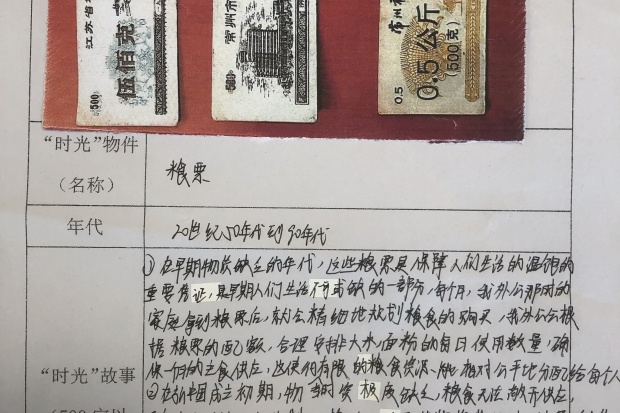 江苏省
伍佰克
500
常州市
500
常州市
0.5公斤
(500克)
0.5
“时光”物件
(名称)
粮票
年代
20世纪50年代到90年代
①在早期物资缺乏的年代,这些粮票是保障人们生活的温饱的
重要凭证,是早期人们生活不或缺的一部分,每个月,我外公那时的
家庭拿到粮票后,就会精细地规划粮食的购买,我外公会根
据粮票的配数,合理安排大米、面粉的每日使用数量,确
保一个月的主食供应,这使得有限的粮食资源能相对公平地分配给每个人
“时光”故事
②在新中国成立初期,物资极度缺乏,粮食无法敞开供应,